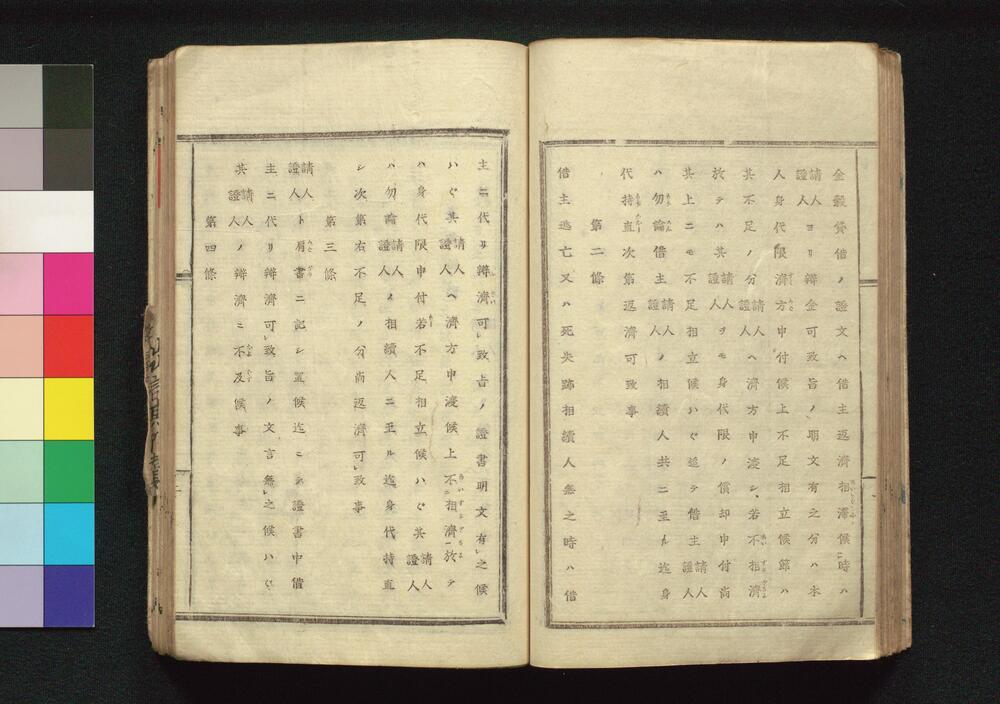 金穀貸借ノ證文ヘ借主返濟相滯候時ハ
請人證人ヨリ辨金可致旨ノ明文有之分ハ本
人身代限濟方申付候上不足相立候節ハ
其不足ノ分請人證人ヘ濟方申渡シ若不相濟
放テハ其請人證人ヲモ身代限ノ償却申付尚
其上ニモ不足相立候ハヾ追テ借主請人證人
ハ勿論借主請人證人ノ相續人共ニ至ル迄身
代持直次第返濟可致事
第二條
借主逃亡又ハ死失跡相續人無之時ハ借
主ニ代リ辨濟可致旨ノ證書明文有之候
ハヾ其請人證人ヘ濟方申渡候上不相濟放テ
ハ身代限申付若不足相立候ハヾ其請人證人
ハ勿論請人證人ノ相續人ニ至ル迄身代持直
シ次第右不足ノ分尚返濟可致事
第三條
請人證人ト肩書ニ記シ置候迄ニテ證書中借
主ニ代リ辨濟可致旨ノ文言無之候ハヾ
其請人證人ノ辨濟ニ不及候事
第四條